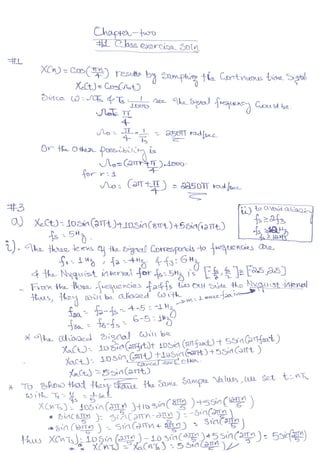 Chapter-two
#1 Class exercise Soln
#1
X(n) = Cos(πn/4) results by Sampling the Continuous time Signal
Xa(t) = Cos(Ωt)
Since ω = ΩTs & Ts = 1/1000 sec the Signal frequency Could be
ΩTs = π/4
Ω0 = π/4 · 1/Ts = 250π rad/sec
Or the Other possibility is
Ω0 = (2πr + π/4)·1000
for r=1
Ω0 = (2π + π/4) = 2250π rad/sec
#3
a) Xa(t) = 10Sin(2πt) + 10Sin(8πt) + 5Sin(12πt)
fs = 5Hz
ii) to avoid aliasing
fs ≥ 2fs
fs ≥ 12Hz
i). The three terms of the Signal Corresponds to frequencies are
f1 = 1Hz, f2 = 4Hz & f3 = 6Hz
& the Nyquist interval for fs = 5Hz is [-fs/2, fs/2] = [-2.5, 2.5]
- From the three frequencies f2 & f3 lies out side the Nyquist interval
thus, they will be aliased with
f2a = f2 - fs = 4-5 = -1Hz
f3a = f3 - fs = 6-5 = 1Hz
* The aliased Signal Will be
Xa(t) = 10Sin(2πf1t) + 10Sin(2πf2at) + 5Sin(2πf3at)
Xa(t) = 10Sin(2πt) + 10Sin(-2πt) + 5Sin(2πt)
Cancel each other
Xa(t) = 5Sin(2πt)
* To Show that they have the Same Sample Values, we set t = nTs
With Ts = 1/fs = 1/5 sec
X(nTs) = 10Sin(2πn/5) + 10Sin(8πn/5) + 5Sin(12πn/5)
* Sin(8πn/5) = Sin(2πn - 2πn/5) = -Sin(2πn/5)
* Sin(12πn/5) = Sin(2πn + 2πn/5) = Sin(2πn/5)
thus X(nTs) = 10Sin(2πn/5) - 10Sin(2πn/5) + 5Sin(2πn/5) = 5Sin(2πn/5)
* X(nTs) = Xa(nTs) = 5Sin(2πn/5)